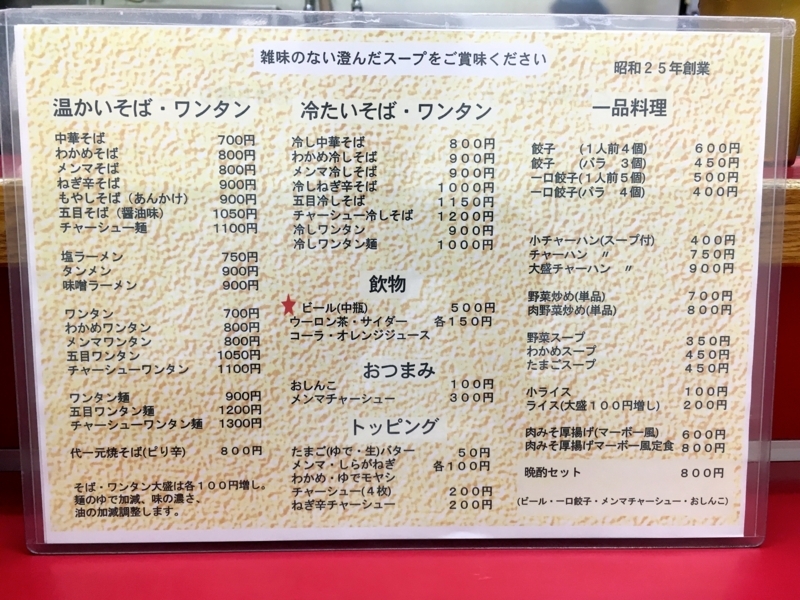 雑味のない澄んだスープをご賞味ください
昭和25年創業
温かいそば・ワンタン
中華そば 700円
わかめそば 800円
メンマそば 800円
ねぎ辛そば 900円
もやしそば（あんかけ） 900円
五目そば（醤油味） 1050円
チャーシュー麺 1100円
塩ラーメン 750円
タンメン 900円
味噌ラーメン 900円
ワンタン 700円
わかめワンタン 800円
メンマワンタン 800円
五目ワンタン 1050円
チャーシューワンタン 1100円
ワンタン麺 900円
五目ワンタン麺 1200円
チャーシューワンタン麺 1300円
代一元焼そば(ピリ辛) 800円
そば・ワンタン大盛は各100円増し。
麺のゆで加減、味の濃さ、
油の加減調整します。
冷たいそば・ワンタン
冷し中華そば 800円
わかめ冷しそば 900円
メンマ冷しそば 900円
冷しねぎ辛そば 1000円
五目冷しそば 1150円
チャーシュー冷しそば 1200円
冷しワンタン 900円
冷しワンタン麺 1000円
飲物
★ビール(中瓶) 500円
ウーロン茶・サイダー 各150円
コーラ・オレンジジュース
おつまみ
おしんこ 100円
メンマチャーシュー 300円
トッピング
たまご(ゆで・生)バター 50円
メンマ・しらがねぎ 各100円
わかめ・ゆでモヤシ
チャーシュー(4枚) 200円
ねぎ辛チャーシュー 200円
一品料理
餃子 (1人前4個) 600円
餃子 (バラ 3個) 450円
一口餃子(1人前5個) 500円
一口餃子(バラ 4個) 400円
小チャーハン(スープ付) 400円
チャーハン 〃 750円
大盛チャーハン 〃 900円
野菜炒め(単品) 700円
肉野菜炒め(単品) 800円
野菜スープ 350円
わかめスープ 450円
たまごスープ 450円
小ライス 100円
ライス(大盛100円増し) 200円
肉みそ厚揚げ(マーボー風) 600円
肉みそ厚揚げマーボー風定食 800円
晩酌セット 800円
(ビール・一口餃子・メンマチャーシュー・おしんこ)